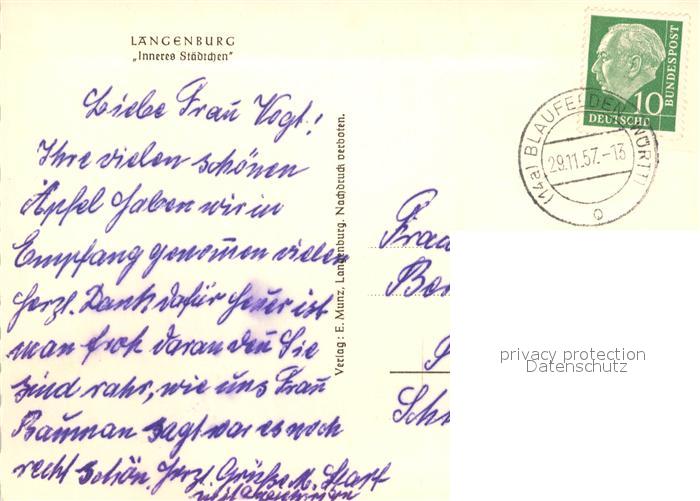 LANGENBURG
„Inneres Städtchen"
Liebe Frau Vogt!
Ihre vielen schönen
Äpfel haben wir in
Empfang genommen vielen
herzl. Dank dafür heuer ist
man froh daran den Sie
sind rahr, wie uns Frau
Bauman sagt war es noch
recht schön. Herzl. Grüße M.
Verlag: E. Munz, Langenburg. Nachdruck verboten.
10
DEUTSCHE
BUNDESPOST
(14a) BLAUFELDEN (WÜRTT)
29.11.57.-13
Frau
privacy protection
Datenschutz